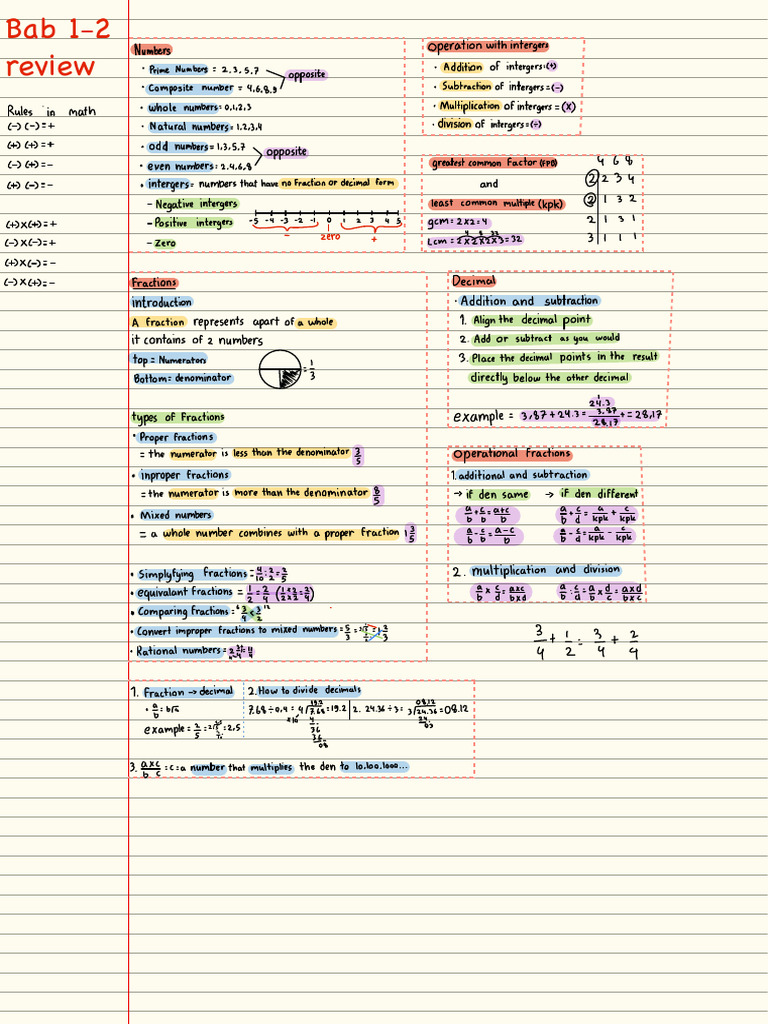 Bab 1-2
review
Rules in math
(-) (-) = +
(+) (+) = +
(-) (+) = -
(+) (-) = -
(+) x (+) = +
(-) x (-) = +
(+) x (-) = -
(-) x (+) = -
Numbers
• Prime Numbers = 2, 3, 5, 7
• Composite number = 4, 6, 8, 9
opposite
• whole numbers = 0, 1, 2, 3
• Natural numbers = 1, 2, 3, 4
• odd numbers = 1, 3, 5, 7
• even numbers = 2, 4, 6, 8
opposite
• intergers = numbers that have no fraction or decimal form
- Negative intergers
- Positive intergers
- Zero
-5 -4 -3 -2 -1 0 1 2 3 4 5
- zero +
Operation with intergers
• Addition of intergers = (+)
• Subtraction of intergers = (-)
• Multiplication of intergers = (x)
• division of intergers = (÷)
greatest common Factor (FPB)
and
least common multiple (kpk)
gcm = 2 x 2 = 4
Lcm = 2 x 2 x 2 x 3 = 32
4 8 32
4 6 8
2 2 3 4
2 1 3 2
2 1 3 1
3 1 1 1
Fractions
introduction
A fraction represents apart of a whole
it contains of 2 numbers
top = Numerators
Bottom = denominator
= 1/3
types of Fractions
• Proper fractions
= the numerator is less than the denominator 3/5
• inproper fractions
= the numerator is more than the denominator 8/5
• Mixed numbers
= a whole number combines with a proper fraction 1 3/5
• Simplyfying fractions = 4/10 : 2/2 = 2/5
• equivalant fractions = 1/2 = 2/4 (1x2/2x2 = 2/4)
• Comparing fractions =
• Convert improper fractions to mixed numbers = 5/3
• Rational numbers =
Decimal
• Addition and subtraction
1. Align the decimal point
2. Add or subtract as you would
3. Place the decimal points in the result
directly below the other decimal
1
24.3
example = 3,87 + 24.3 = 3.87 + = 28,17
28.17
Operational fractions
1. additional and subtraction
→ if den same → if den different
a/b + c/b = a+c/b a/b + c/d = a/kpk + c/kpk
a/b - c/b = a-c/b a/b - c/d = a/kpk - c/kpk
2. multiplication and division
a/b x c/d = axc/bxd a/b : c/d = a/b x d/c = axd/bxc
3/4 + 1/2 = 3/4 + 2/4
1. fraction → decimal
• a/b = b√a
example = 2/5 = = 2,5
2. How to divide decimals
7.68 ÷ 0,4 = 4/7.68 = 19.2
19.2
x10
4
36
36
08
2. 24.36 ÷ 3 = 3/24.36 = 08.12
08.12
24
03
3. axc/b c = c = a number that multiplies the den to 10.100.1000...